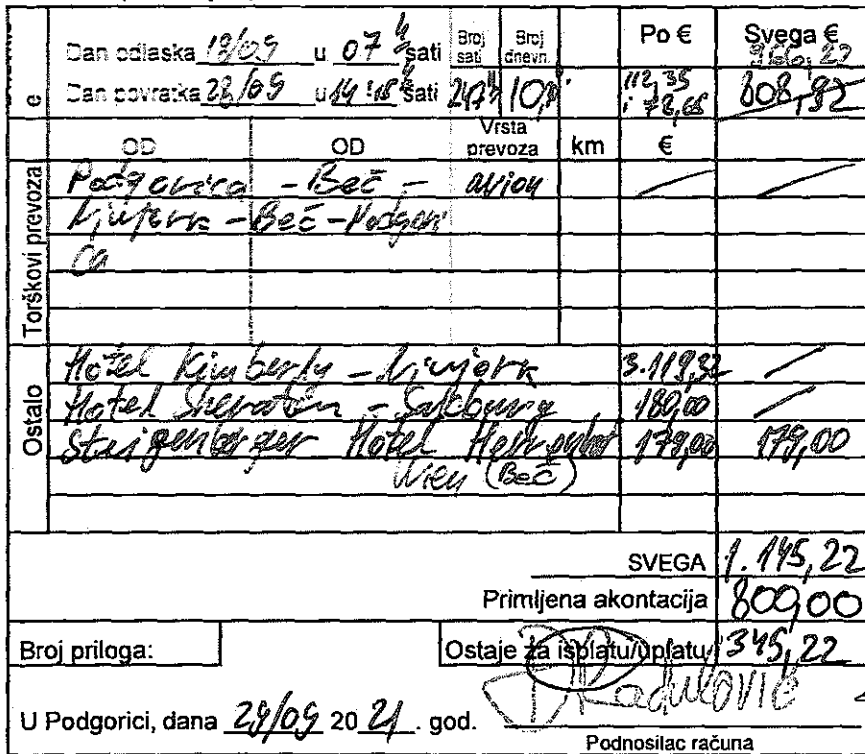 e
Dan odlaska 18/09 u 07 h sati Broj sati Broj dnevn. Po € Svega €
966,22
Dan povratka 28/09 u 14:15 h sati 247 h 10, 112,35 i 72,65 808,92
OD OD Vrsta prevoza km €
Torškovi prevoza
Podgorica - Beč - avion
Njujork - Beč - Podgori
ca
Ostalo
Hotel Kimberly - Njujork 3.119,32
Hotel Sheraton - Salzburg 180,00
Steigenberger Hotel Herrenhof 179,00 179,00
Wien (Beč)
SVEGA 1.145,22
Primljena akontacija 800,00
Broj priloga: Ostaje za isplatu/uplatu 345,22
Radulović
U Podgorici, dana 29/09 20 21. god.
Podnosilac računa